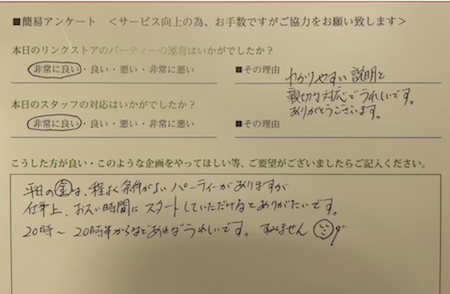 ■簡易アンケート <サービス向上の為、お手数ですがご協力をお願い致します>
本日のリンクストアのパーティーの運営はいかがでしたか?
非常に良い・良い・悪い・非常に悪い
■その理由
わかりやすい説明と
親切な対応でうれしいです。
ありがとうございます。
本日のスタッフの対応はいかがでしたか?
非常に良い・良い・悪い・非常に悪い
■その理由
こうした方が良い・このような企画をやってほしい等、ご要望がございましたらご記入ください。
平日の金は、程よく条件がよいパーティーがありますが
仕事上、おそい時間にスタートしていただけるとありがたいです。
20時〜20時半からなどあればうれしいです。すみません